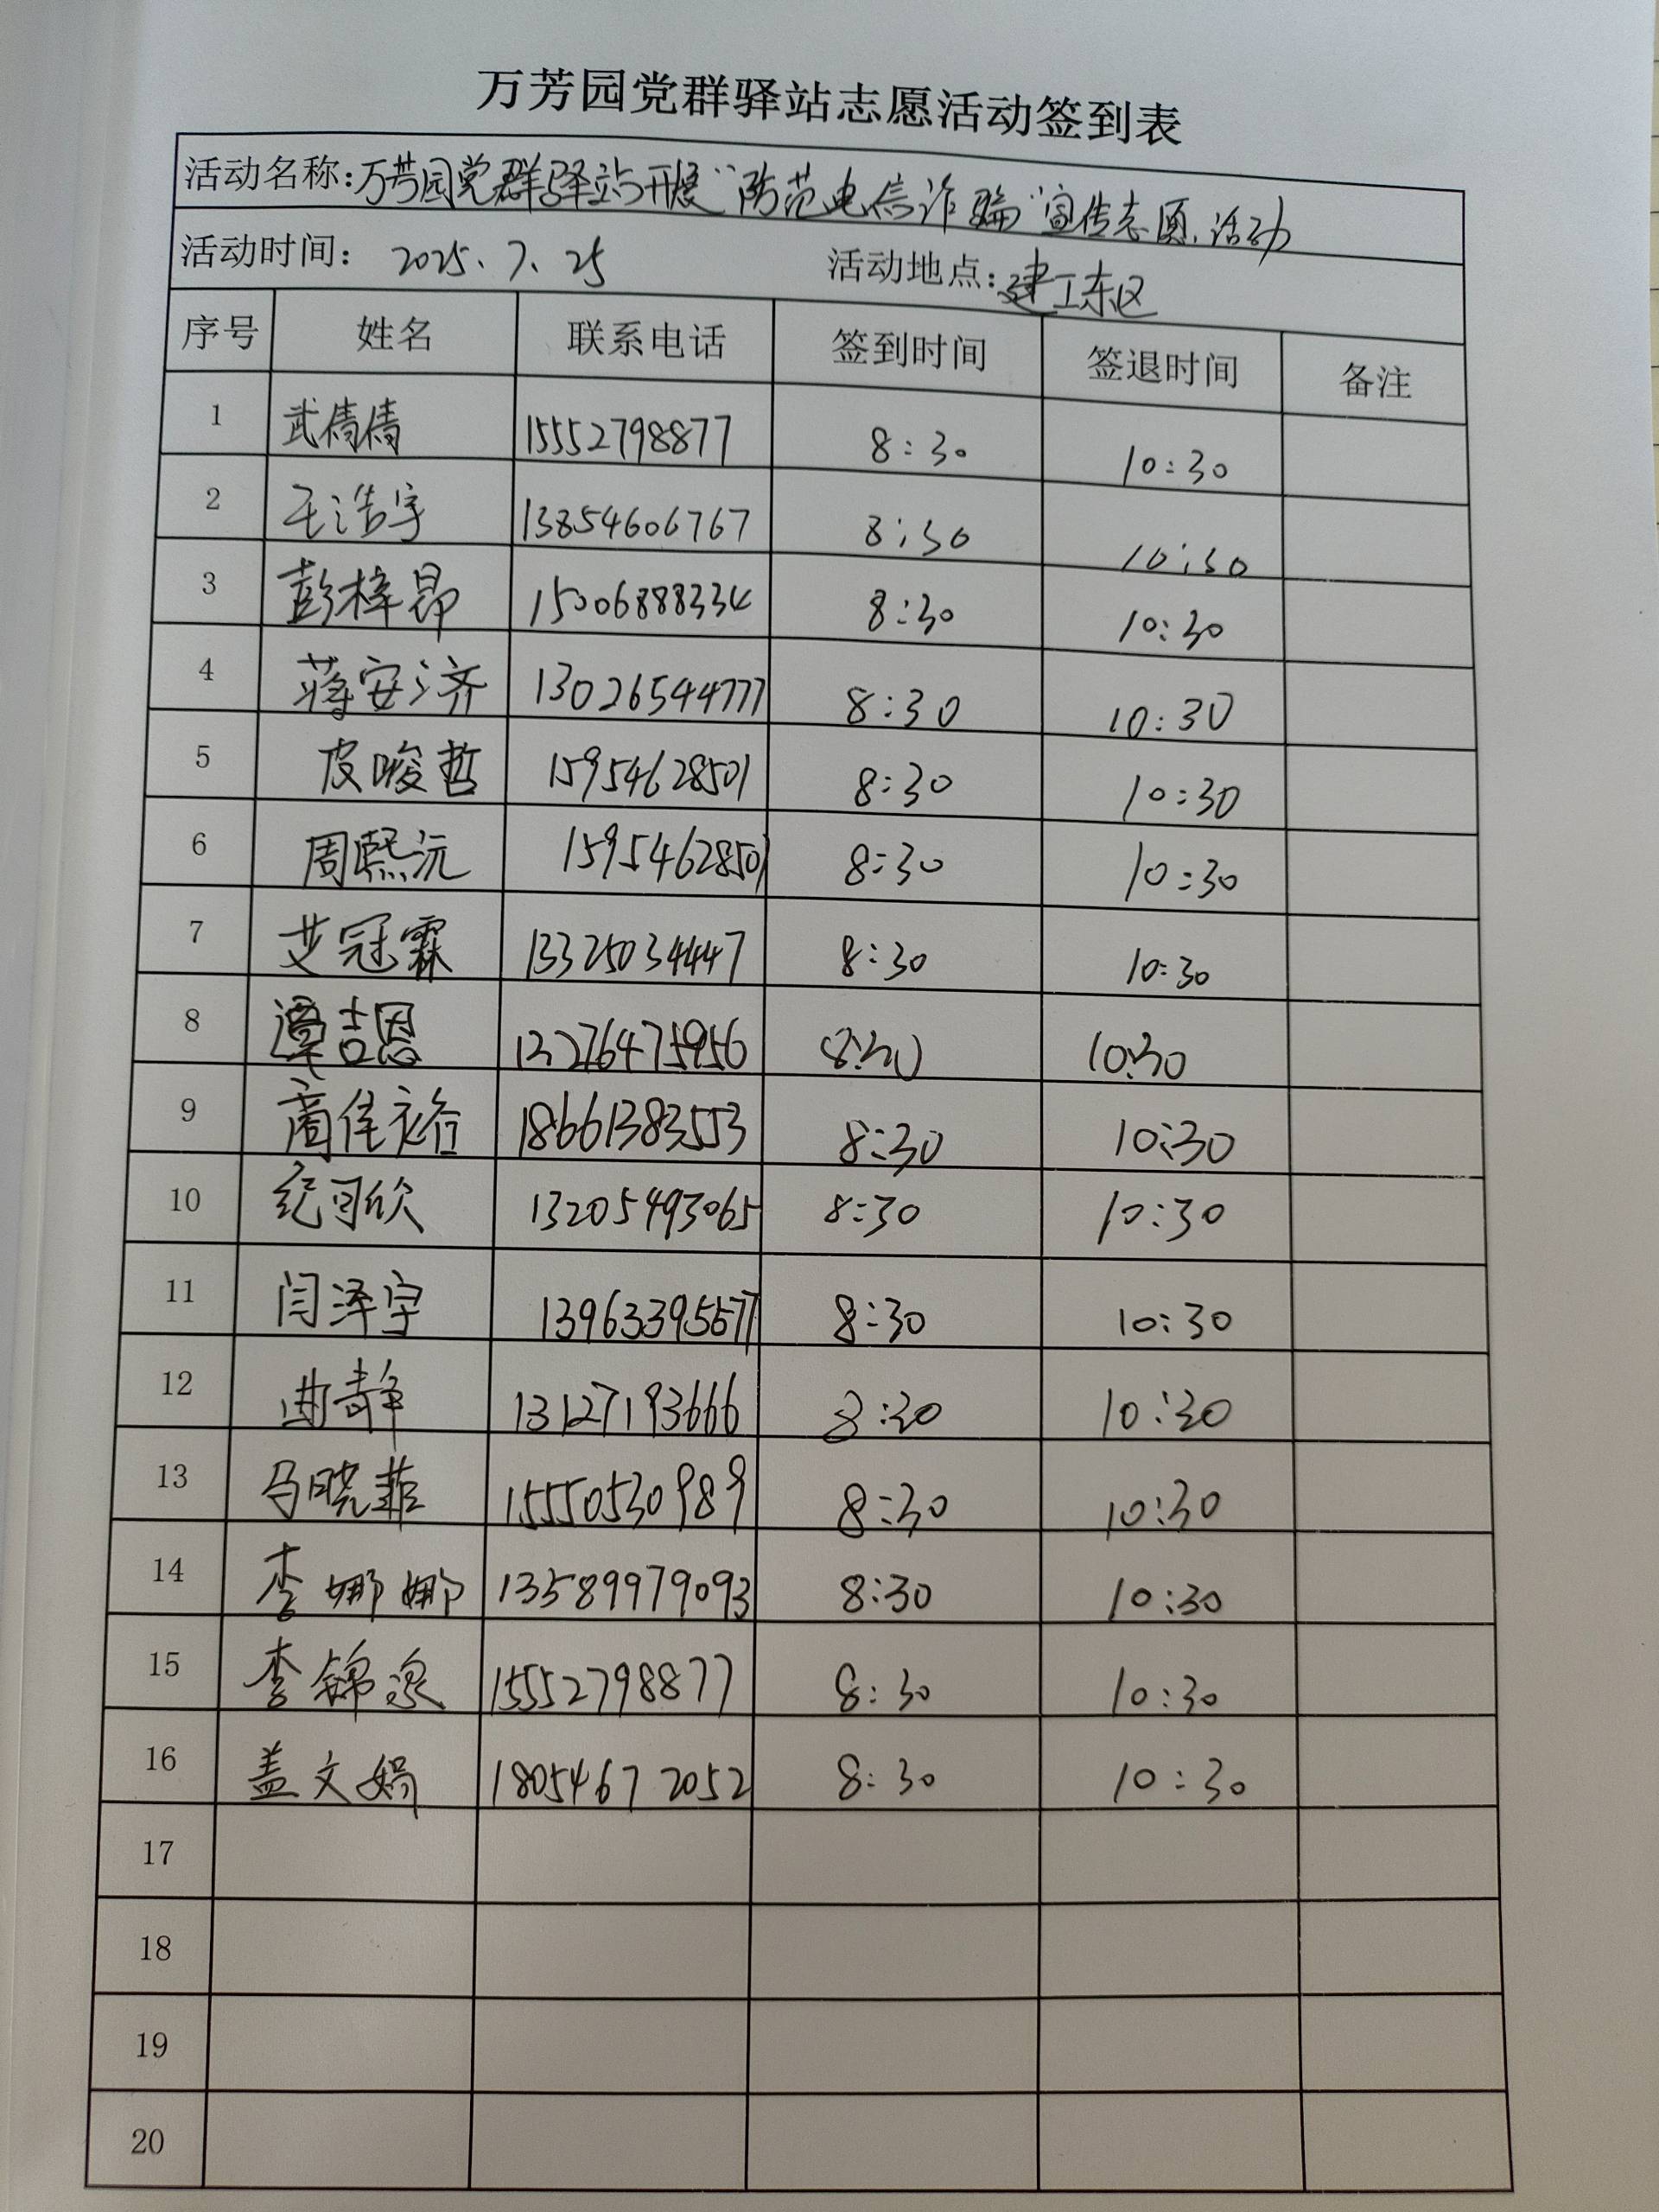 万芳园党群驿站志愿活动签到表
活动名称:万芳园党群驿站开展“防范电信诈骗”宣传志愿活动
活动时间: 2025.7.25 活动地点:建工东区
序号 姓名 联系电话 签到时间 签退时间 备注
1 武倩倩 15552798877 8:30 10:30
2 王浩宇 13854606767 8:30 10:30
3 彭梓昂 15006888334 8:30 10:30
4 蒋安济 13026544777 8:30 10:30
5 皮唆哲 15954628501 8:30 10:30
6 周熙沅 15954628501 8:30 10:30
7 艾冠霖 13325034447 8:30 10:30
8 谭吉恩 13276475956 8:30 10:30
9 商佳裕 18661383553 8:30 10:30
10 纪可欣 13205493065 8:30 10:30
11 闫泽宇 13963395577 8:30 10:30
12 曲静 13127193666 8:30 10:30
13 马晓菲 15550530989 8:30 10:30
14 李娜娜 13589979093 8:30 10:30
15 李锦 15552798877 8:30 10:30
16 盖文娟 18054672052 8:30 10:30
17
18
19
20